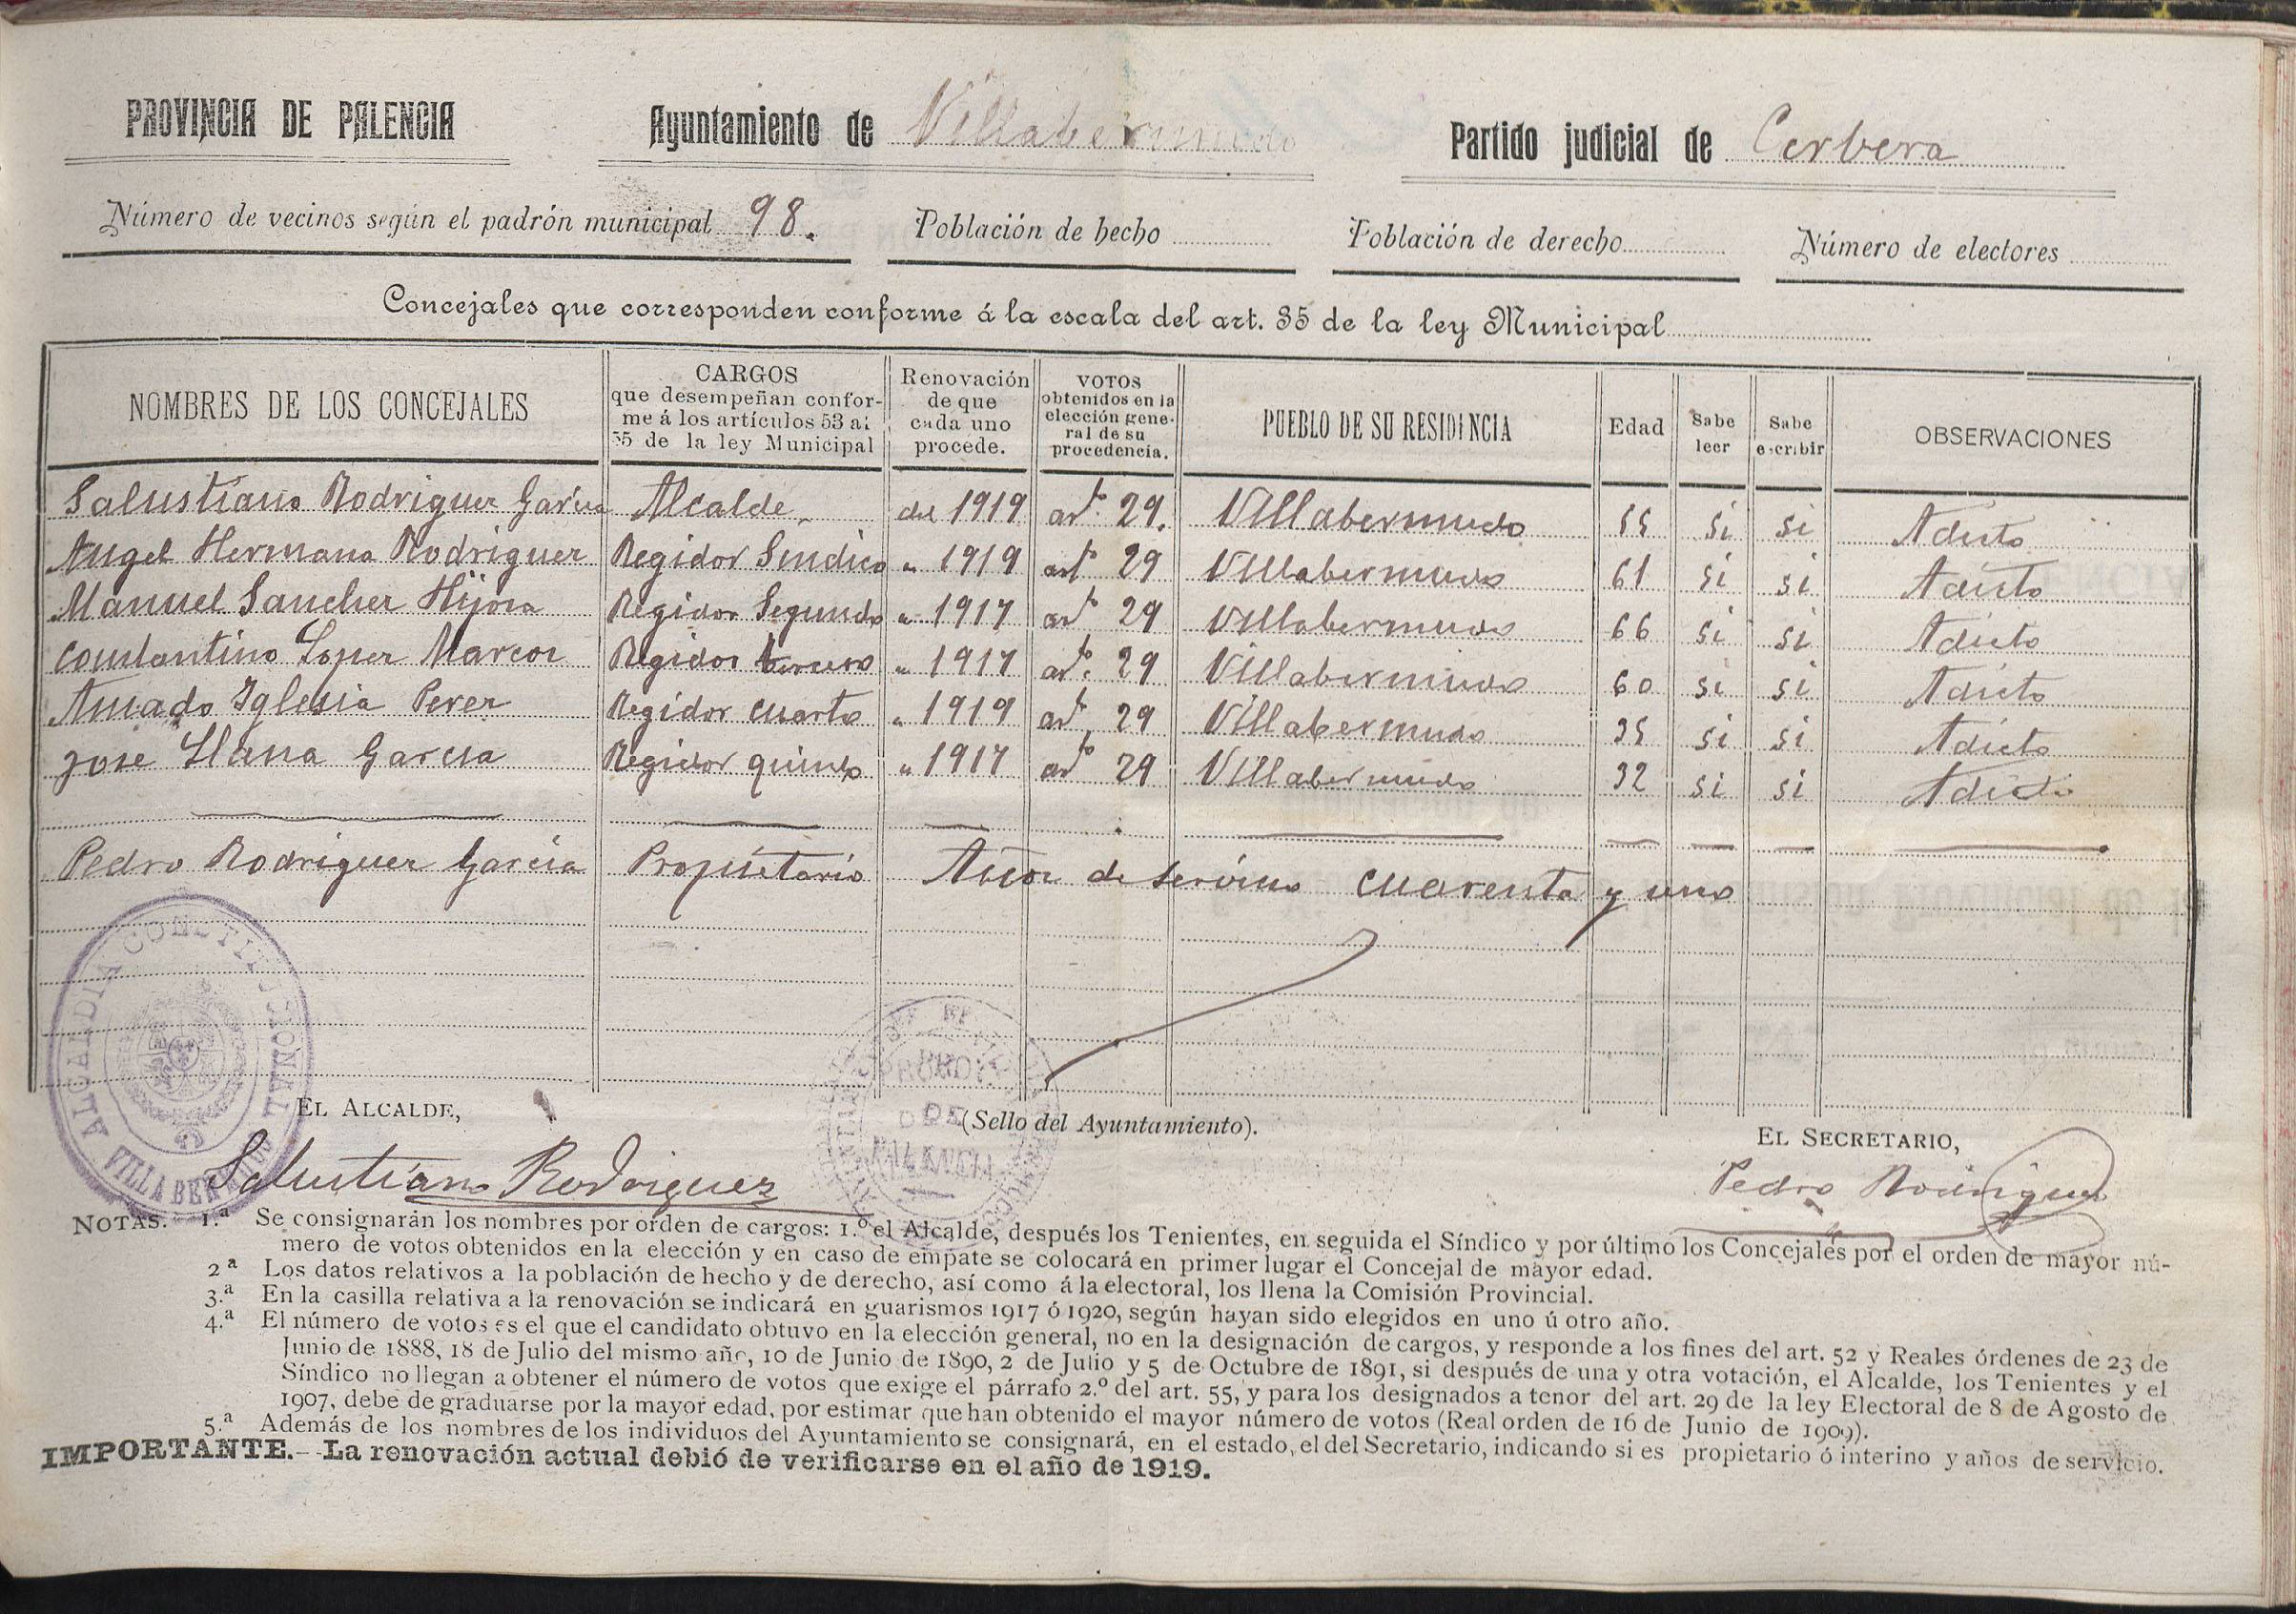 PROVINCIA DE PALENCIA Ayuntamiento de Villabermudo Partido judicial de Cerbera
Número de vecinos según el padrón municipal 98. Población de hecho Población de derecho Número de electores
Concejales que corresponden conforme á la escala del art. 35 de la ley Municipal
NOMBRES DE LOS CONCEJALES
CARGOS
que desempeñan confor-
me á los artículos 53 al
55 de la ley Municipal
Renovación
de que
cada uno
procede.
VOTOS
obtenidos en la
elección gene-
ral de su
procedencia.
PUEBLO DE SU RESIDENCIA
Edad
Sabe
leer
Sabe
escribir
OBSERVACIONES
Salustiano Rodriguez Garcia Alcalde del 1919 arto. 29. Villabermudo 55 si si Adicto
Angel Hermana Rodriguez Regidor Sindico " 1919 arto 29 Villabermudo 61 si si Adicto
Manuel Sanchez Hijosa Regidor Segundo " 1917 arto 29 Villabermudo 66 si si Adicto
Constantino Lopez Marcos Regidor tercero " 1917 arto. 29 Villabermudo 60 si si Adicto
Amado Iglesia Perez Regidor cuarto " 1919 arto 29 Villabermudo 35 si si Adicto
Jose Llana Garcia Regidor quinto " 1917 arto 29 Villabermudo 32 si si Adicto
Pedro Rodriguez Garcia Propietario Años de servicio cuarenta y uno
ALCALDIA CONSTITUCIONAL
VILLABERMUDO
PALENCIA
EL ALCALDE,
(Sello del Ayuntamiento).
EL SECRETARIO,
Salustiano Rodriguez
Pedro Rodriguez
NOTAS. 1.ª Se consignarán los nombres por orden de cargos: 1.º el Alcalde, después los Tenientes, en seguida el Síndico y por último los Concejales por el orden de mayor nú-
mero de votos obtenidos en la elección y en caso de empate se colocará en primer lugar el Concejal de mayor edad.
2.ª Los datos relativos a la población de hecho y de derecho, así como á la electoral, los llena la Comisión Provincial.
3.ª En la casilla relativa a la renovación se indicará en guarismos 1917 ó 1920, según hayan sido elegidos en uno ú otro año.
4.ª El número de votos es el que el candidato obtuvo en la elección general, no en la designación de cargos, y responde a los fines del art. 52 y Reales órdenes de 23 de
Junio de 1888, 18 de Julio del mismo año, 10 de Junio de 1890, 2 de Julio y 5 de Octubre de 1891, si después de una y otra votación, el Alcalde, los Tenientes y el
Síndico no llegan a obtener el número de votos que exige el párrafo 2.º del art. 55, y para los designados a tenor del art. 29 de la ley Electoral de 8 de Agosto de
1907, debe de graduarse por la mayor edad, por estimar que han obtenido el mayor número de votos (Real orden de 16 de Junio de 1909).
5.ª Además de los nombres de los individuos del Ayuntamiento se consignará, en el estado, el del Secretario, indicando si es propietario ó interino y años de servicio.
IMPORTANTE.—La renovación actual debió de verificarse en el año de 1919.